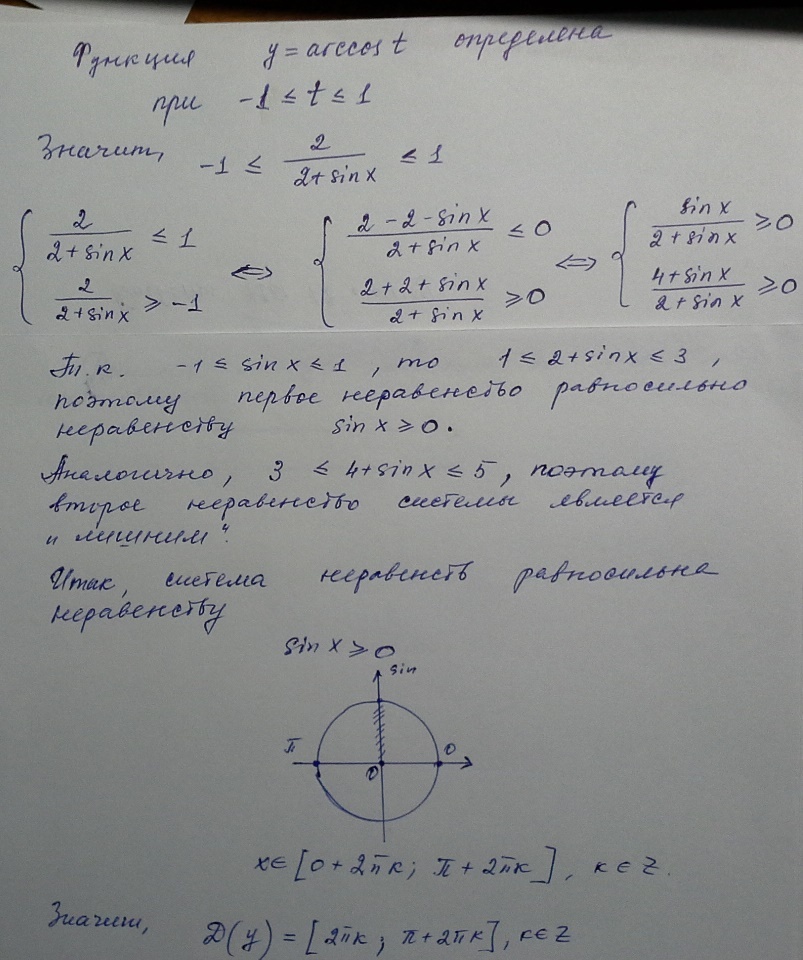 Функция y = arccos t определена
при -1 ≤ t ≤ 1
Значит, -1 ≤ 2/(2+sin x) ≤ 1
{ 2/(2+sin x) ≤ 1 ; 2/(2+sin x) ≥ -1 ⇔ { (2-2-sin x)/(2+sin x) ≤ 0 ; (2+2+sin x)/(2+sin x) ≥ 0 ⇔ { sin x/(2+sin x) ≥ 0 ; (4+sin x)/(2+sin x) ≥ 0
Т.к. -1 ≤ sin x ≤ 1, то 1 ≤ 2+sin x ≤ 3,
поэтому первое неравенство равносильно
неравенству sin x ≥ 0.
Аналогично, 3 ≤ 4+sin x ≤ 5, поэтому
второе неравенство системы является
„лишним“.
Итак, система неравенств равносильна
неравенству
sin x ≥ 0
sin
π 0
0
x ∈ [0+2πk; π+2πk], k ∈ Z.
Значит, D(y) = [2πk; π+2πk], k ∈ Z